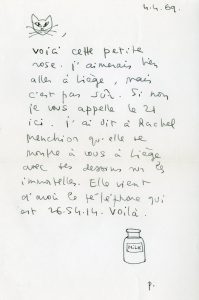 4.4.69.
voilà cette petite
rose. j'aimerais bien
aller à Liège, mais
c'est pas sûr. Si non
je vous appelle le 21
ici. j'ai dit à Rachel
qu'elle se
montre à vous à Liège
avec ses dessins sur les
immortelles. Elle vient
d'avoir le téléphone qui
est 26.54.14. Voilà.
MILK
p.